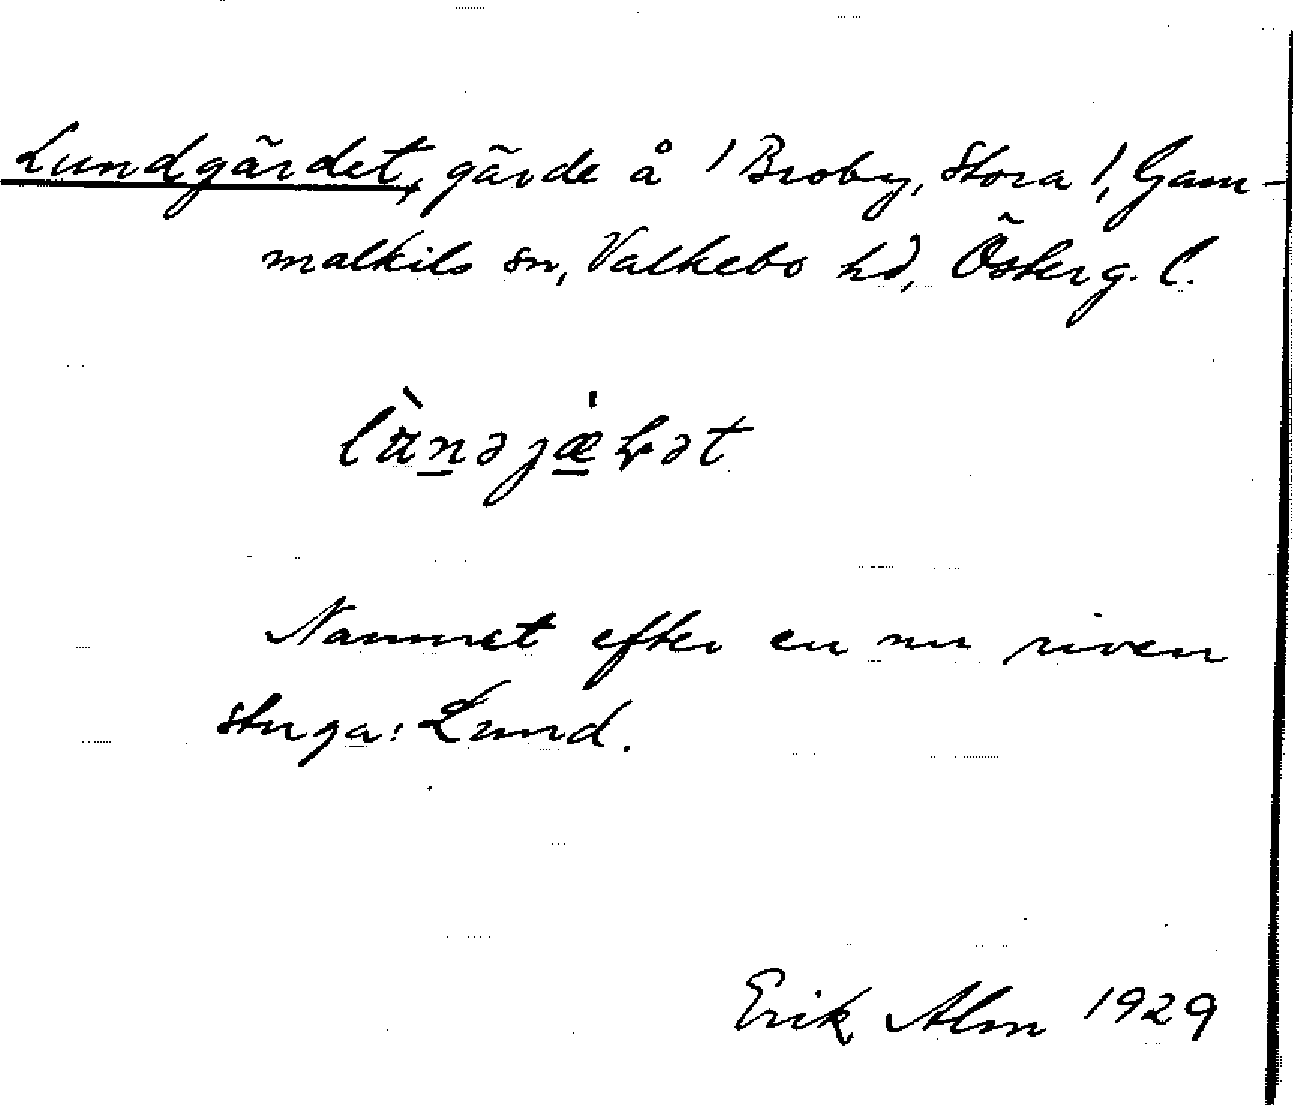 Lundgärdet, gärde å /Broby, Stora/, Gam-
malkils sn, Valkebo hd, Österg. l.
Namnet efter en nu riven
stuga: Lund.
Erik Alm 1929